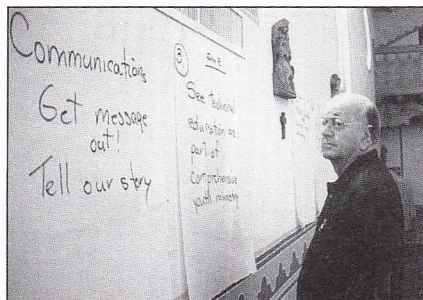 Communications
Get message
out!
Tell our story
3.
See
education as
part of
comprehensive
youth ministry